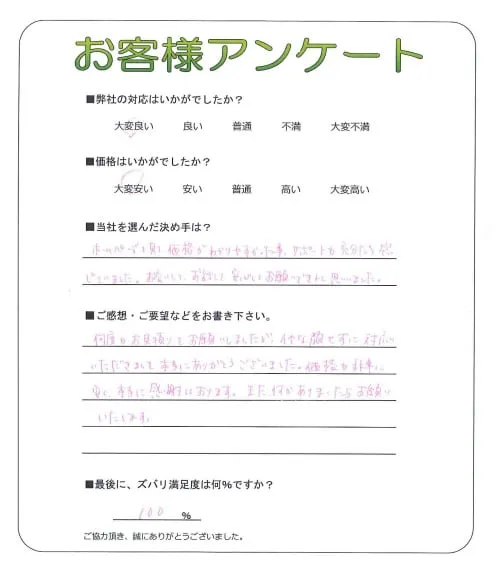 お客様アンケート
■弊社の対応はいかがでしたか？
大変良い 良い 普通 不満 大変不満
■価格はいかがでしたか？
大変安い 安い 普通 高い 大変高い
■当社を選んだ決め手は？
ホームページを見て価格がわかりやすかった事、サポートも充分だと感
じていました。お会いして、お話して 安心してお願いできると思いました。
■ご感想・ご要望などをお書き下さい。
何度かお見積りをお願いしましたが、イヤな顔せずに対応
いただきまして本当にありがとうございました。価格も非常に
安く、本当に感謝しております。また何かありましたらお願い
いたします。
■最後に、ズバリ満足度は何％ですか？
100 ％
ご協力頂き、誠にありがとうございました。